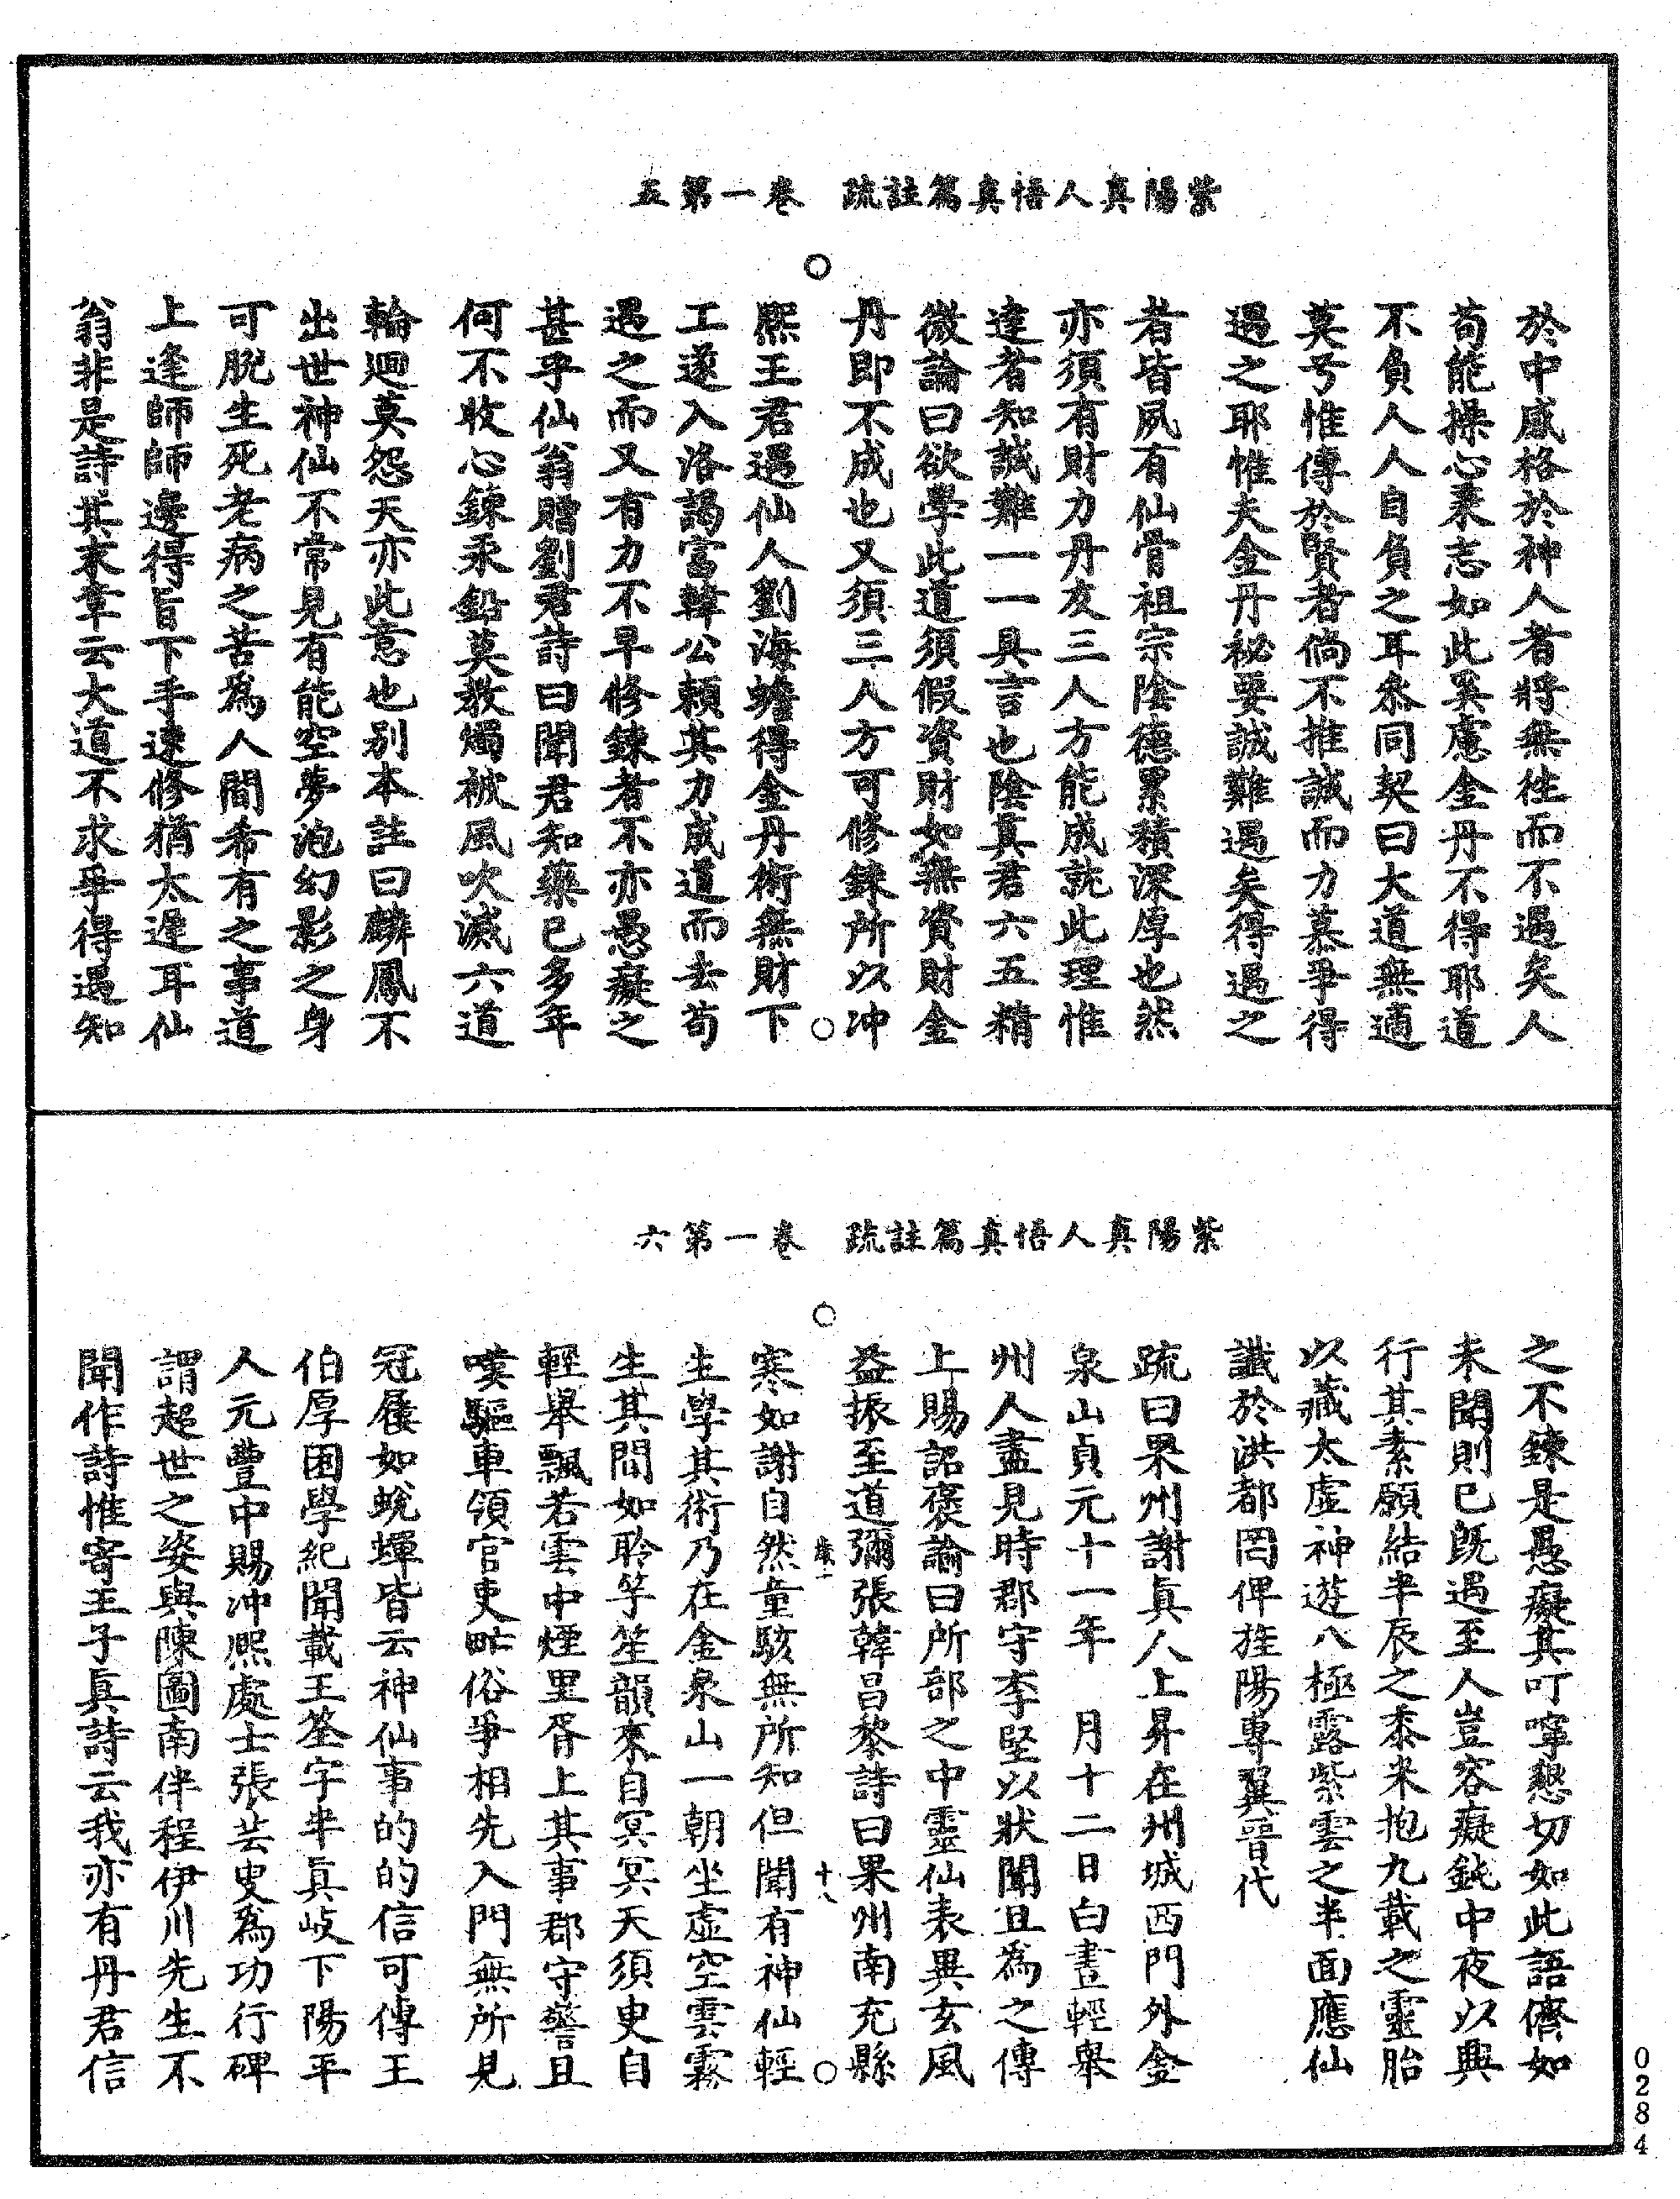 紫陽真人悟真篇註疏　卷一第五
於中感格於神人者將無徃而不遇矣人
苟能操心秉志如此奚慮金丹不得耶道
不負人人自負之耳叅同契曰大道無適
莫兮惟傳於賢者倘不推誠而力慕爭得
遇之耶惟夫金丹秘要誠難遇矣得遇之
者皆夙有仙骨祖宗陰德累積深厚也然
亦須有財力丹友三人方能成就此理惟
達者知誠難一一具言也陰真君六五精
微論曰欲學此道須假資財如無資財金
丹即不成也又須三人方可修鍊所以冲
熙王君遇仙人劉海蟾得金丹術無財下
工遂入洛謁富韓公賴其力成道而去苟
遇之而又有力不早修鍊者不亦愚癡之
甚乎仙翁贈劉君詩曰聞君知藥已多年
何不收心鍊汞鉛莫教燭被風吹滅六道
輪迴莫怨天亦此意也別本註曰麟鳳不
出世神仙不常見有能空夢泡幻影之身
可脫生死老病之苦為人間希有之事道
上逢師師邊得旨下手速修猶太遲耳仙
翁非是詩其末章云大道不求爭得遇知
○
○
紫陽真人悟真篇註疏　卷一第六
之不鍊是愚癡其叮嚀懇切如此語儕如
未聞則已旣遇至人豈容癡鈍中夜以興
行其素願結半辰之黍米抱九載之靈胎
以藏太虛神遊八極露紫雲之半面應仙
讖於洪都罔俾旌陽專翼晉代
疏曰果州謝真人上昇在州城西門外金
泉山貞元十一年　月十二日白晝輕舉
州人盡見時郡守李堅以狀聞且為之傳
上賜詔褒諭曰所部之中靈仙表異玄風
益振至道彌張韓昌黎詩曰果州南充縣
○
歲一
十八
○
寒如謝自然童騃無所知但聞有神仙輕
生學其術乃在金泉山一朝坐虛空雲霧
生其間如聆竽笙韻來自冥冥天須臾自
輕舉飄若雲中煙里胥上其事郡守警且
嘆驅車領官吏甿俗爭相先入門無所見
冠屨如蛻蟬皆云神仙事的的信可傳王
伯厚困學紀聞載王筌字半真岐下陽平
人元豐中賜冲熙處士張芸叟為功行碑
謂超世之姿與陳圖南伴程伊川先生不
聞作詩惟寄王子真詩云我亦有丹君信
0284